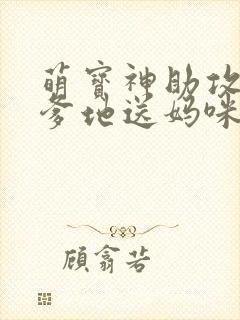 萌宝神助攻
爹地送妈咪
顾翕若